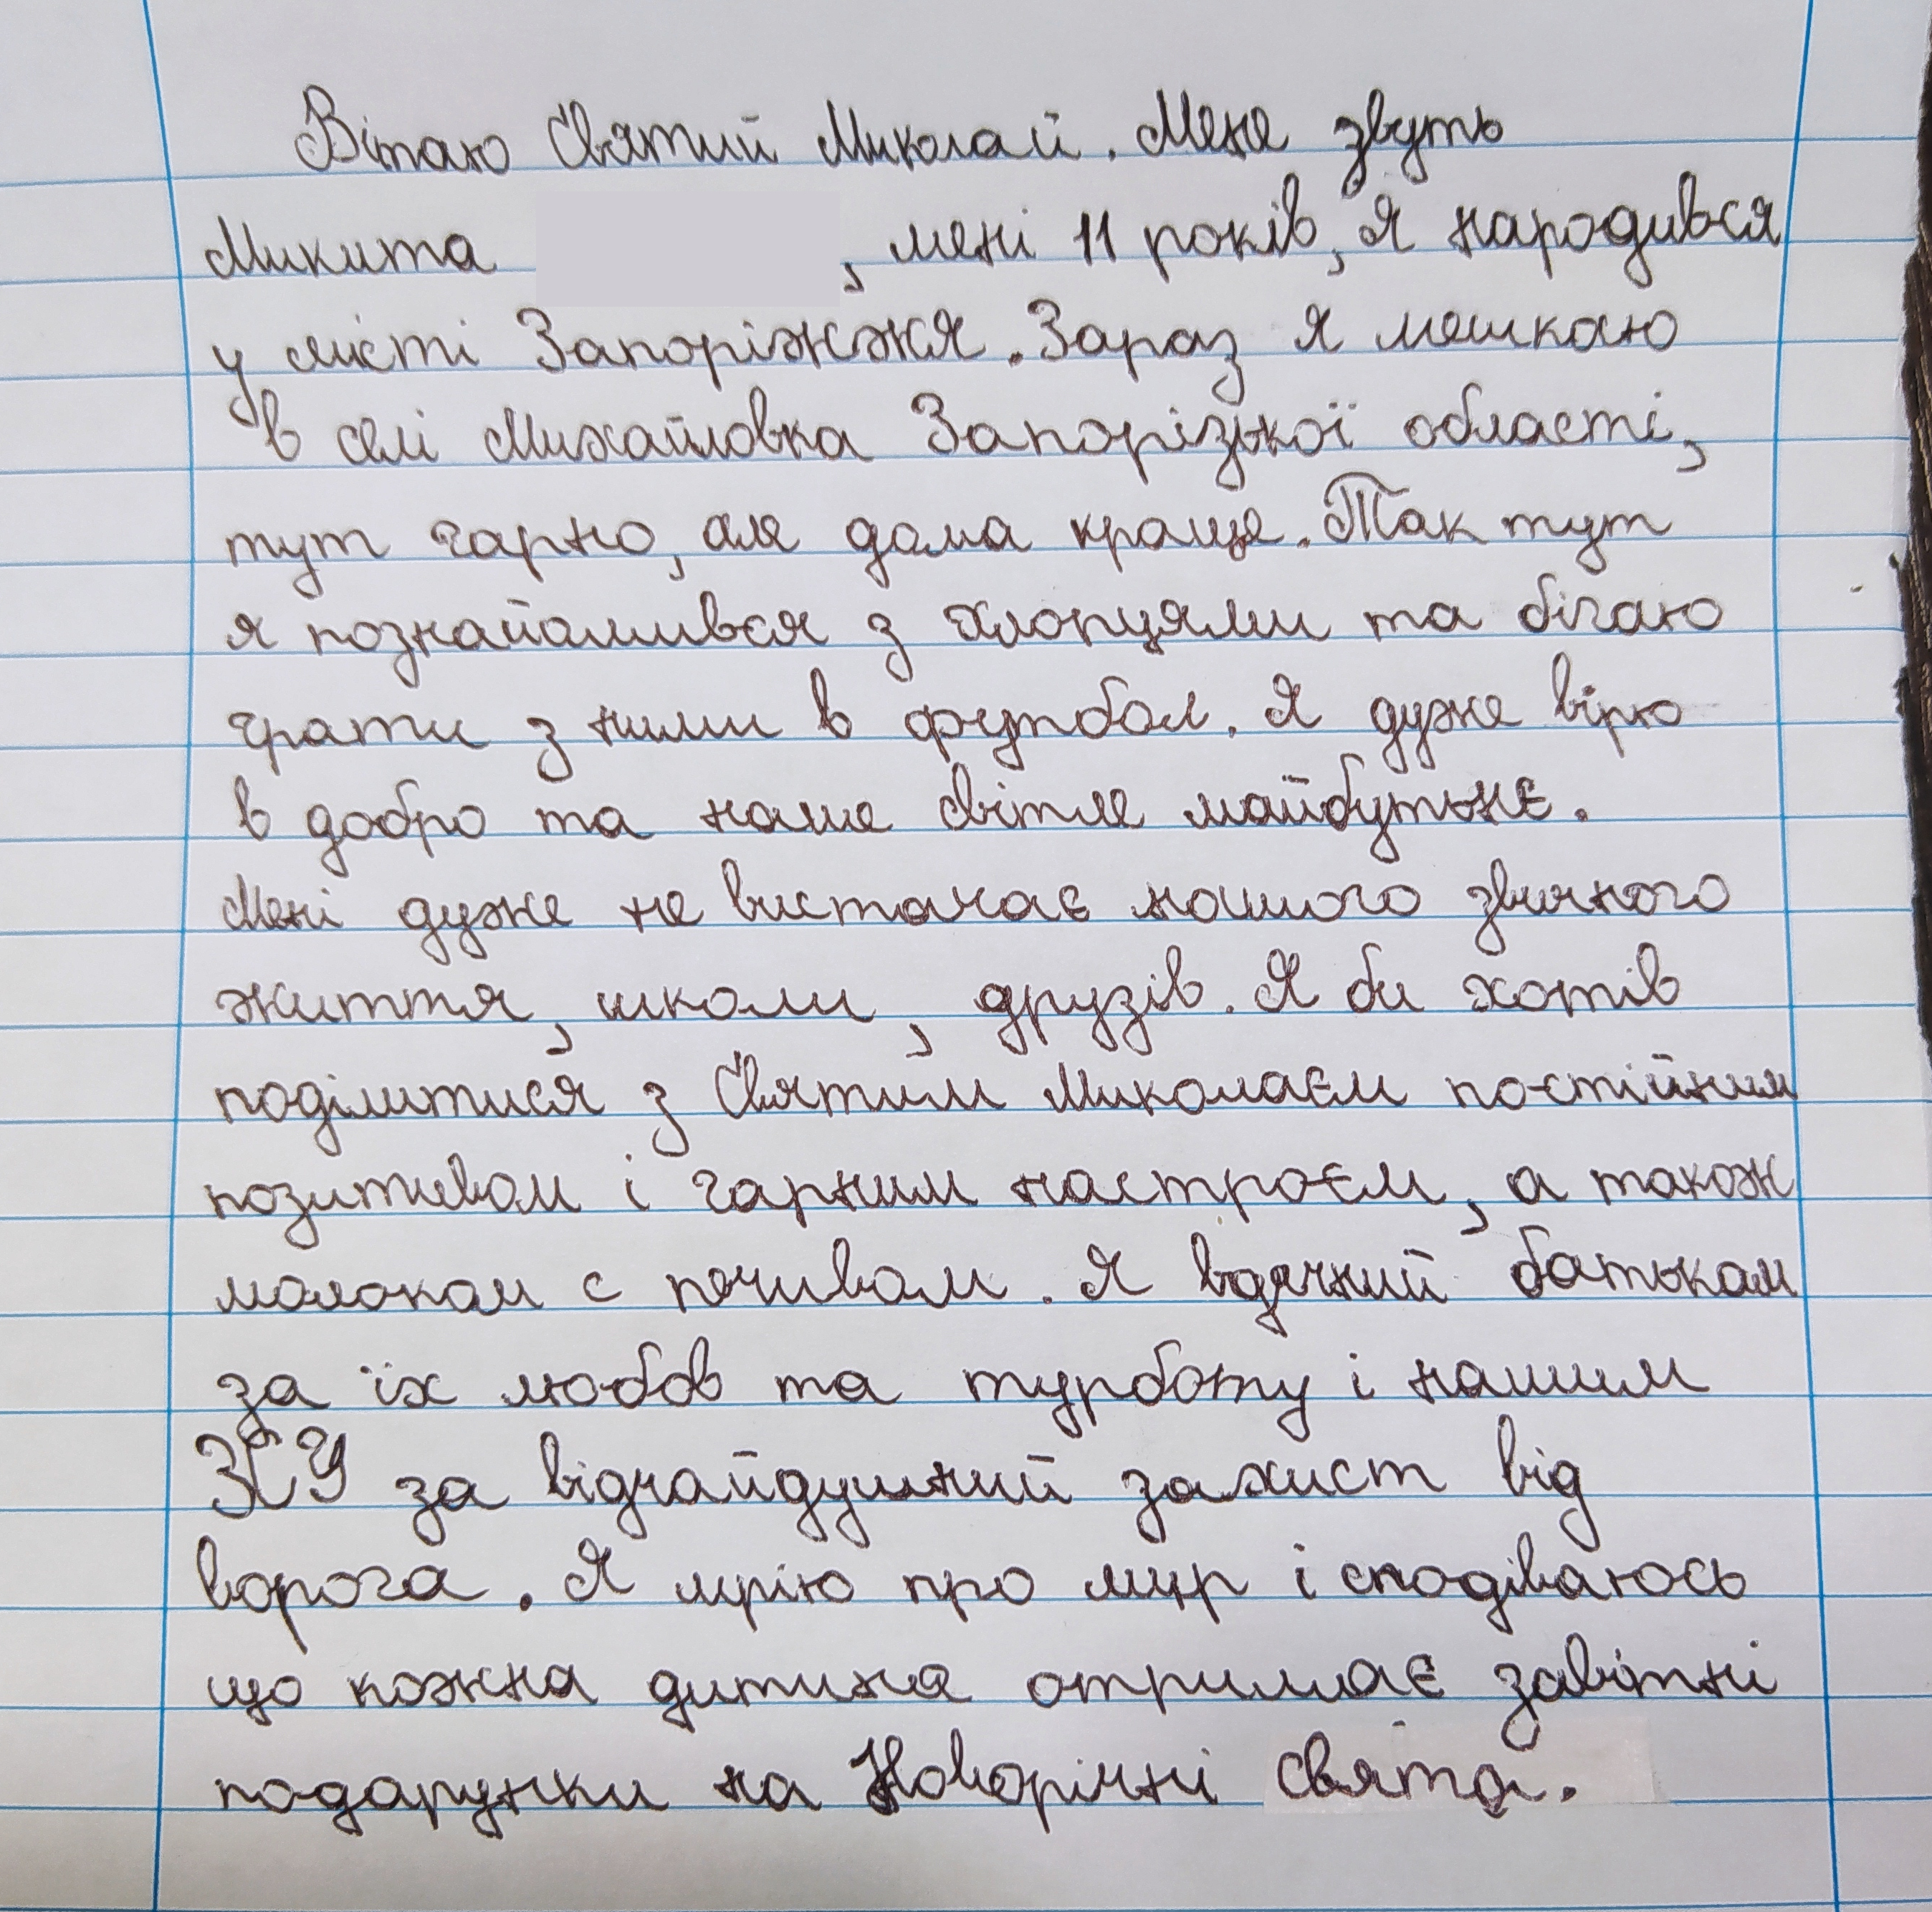 Вітаю Святий Миколай. Мене звуть
Микита , мені 11 років, я народився
у місті Запоріжжя. Зараз я мешкаю
в селі Михайловка Запорізької області,
тут гарно, але дома краще. Так тут
я познайомився з хлопцями та бігаю
грати з ними в футбол. Я дуже вірю
в добро та наше світле майбутьнє.
Мені дуже не вистачає нашого звичного
життя, школи, друзів. Я би хотів
поділитися з Святим Миколаєм постійним
позитивом і гарним настроєм, а також
молоком с печивом. Я вдячний батькам
за їх любов та турботу і нашим
ЗСУ за відчайдушний захист від
ворога. Я мрію про мир і сподіваюсь
що кожна дитина отримає завітні
подарунки на Новорічні свята.